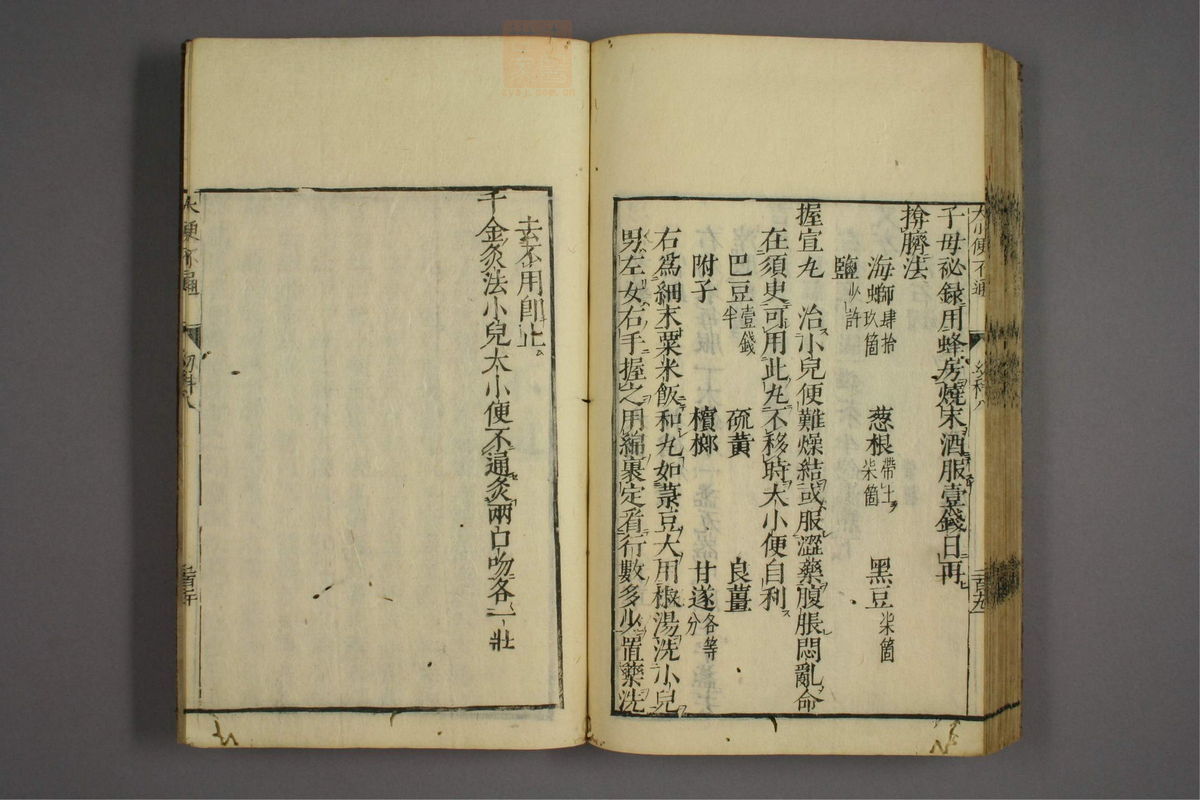 大小便不通
子母祕録用蜂房燒末酒服壹錢日再
揜臍法
海螄肆拾玖箇 葱根帶土柒箇 黑豆柒箇
鹽少許
握宣丸 治小兒便難燥結或服澀藥腹脹悶亂命
在須臾可用此丸不移時大小便自利
巴豆壹錢半 硫黄 良薑
附子 檳榔 甘遂各等分
右爲細末粟米飯和丸如菉豆大用椒湯洗小兒
男左女右手握之用綿裹定看行數多少置藥洗
去不用卽止
千金灸法小兒大小便不通灸兩口吻各一壯
大便不通